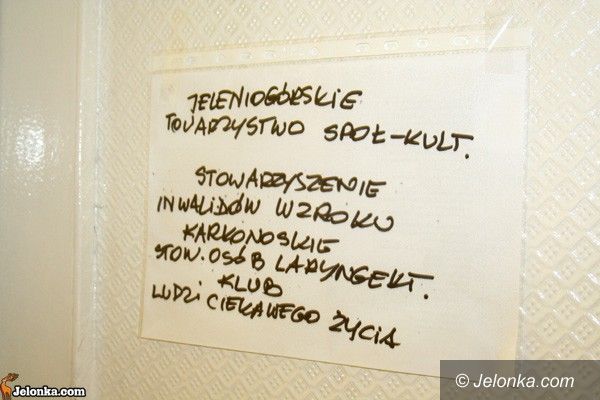 JELENIOGÓRSKIE
TOWARZYSTWO SPOŁ-KULT.
STOWARZYSZENIE
INWALIDÓW WZROKU
KARKONOSKIE
STOW. OSÓB LARYNGEKT.
KLUB
LUDZI CIEKAWEGO ŻYCIA
Jelonka.com
© Jelonka.com